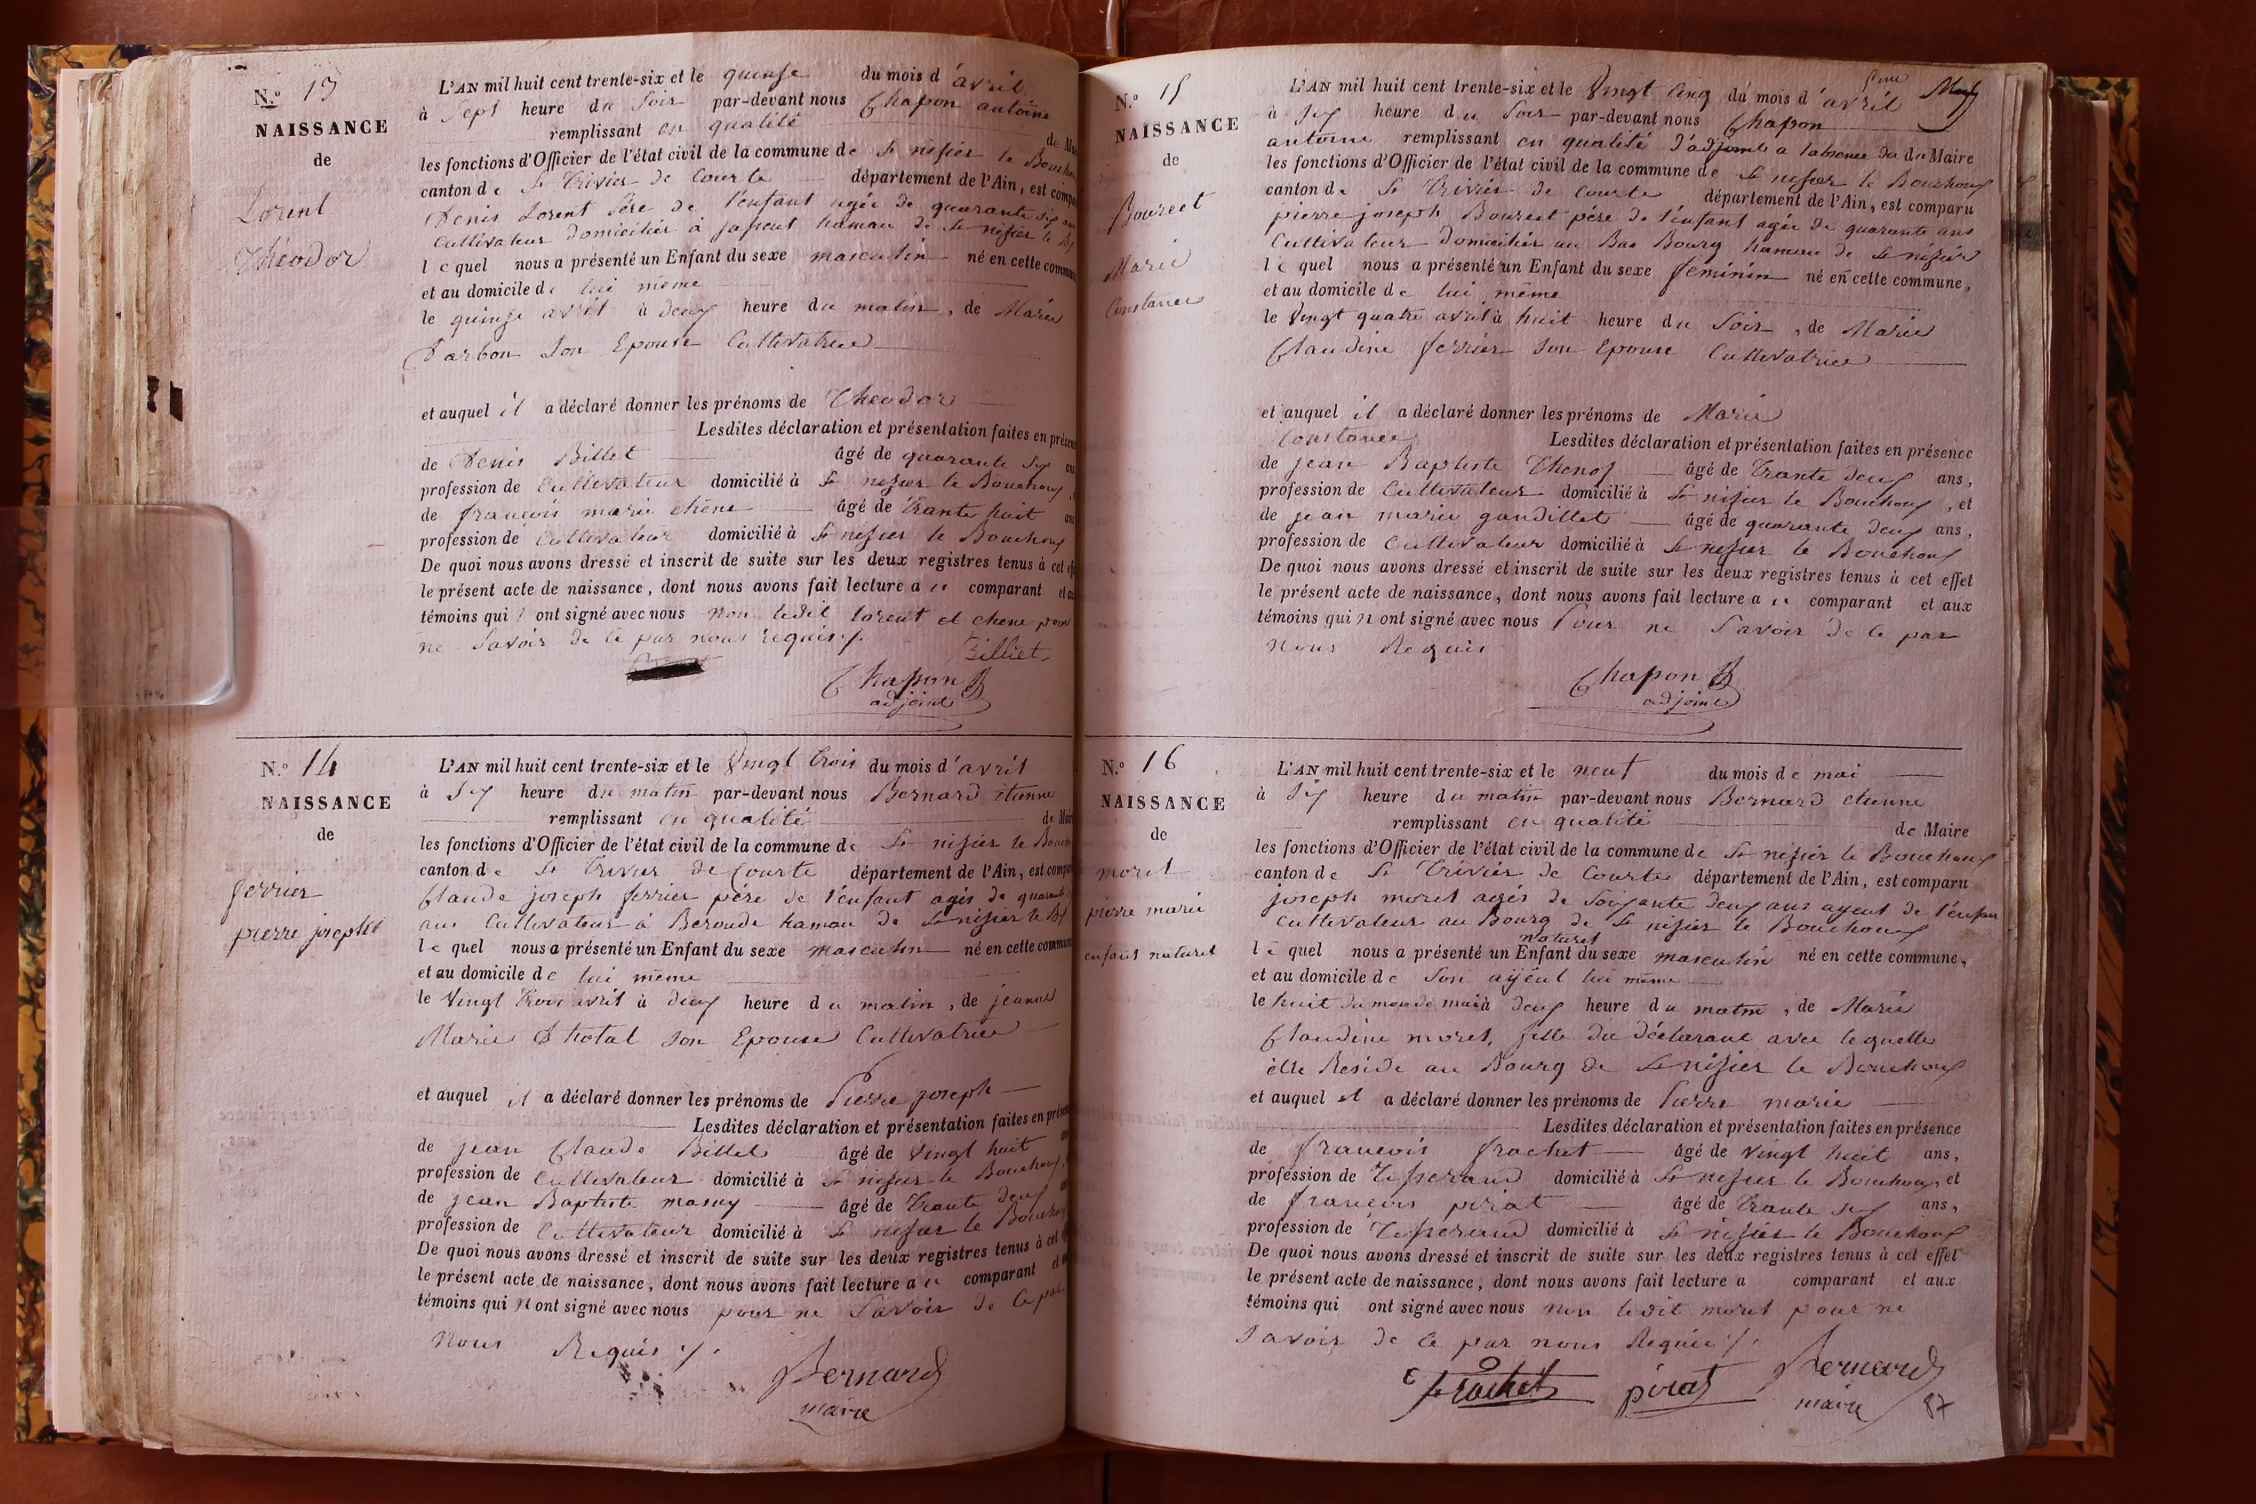 N.º 13
NAISSANCE
de
Lorent
Théodor
L'AN mil huit cent trente-six et le quinse du mois d'avril
à sept heure du soir par-devant nous Chapon antoine
remplissant en qualité de Mai
les fonctions d'Officier de l'état civil de la commune de St nisier le Bouchou
canton de St Trivier de Courte département de l'Ain, est compa
Denis Lorent père de l'enfant agée de quarante six an
Cultivateur domicilier à hamau de St nisier le B
lequel nous a présenté un Enfant du sexe masculin né en cette commun
et au domicile de lui même
le quinse avril à deux heure du matin, de Marie
Darbon son Epouse Cultivatrice
et auquel il a déclaré donner les prénoms de Theodor
Lesdites déclaration et présentation faites en présen
de Denis Billet âgé de quarante six an
profession de Cultivateur domicilié à St nisier le Bouchoux
de françois marie chêne âgé de trante huit ans
profession de Cultivateur domicilié à St nisier le Bouchoux
De quoi nous avons dressé et inscrit de suite sur les deux registres tenus à cet ef
le présent acte de naissance, dont nous avons fait lecture au comparant et au
témoins qui ont signé avec nous non ledit lorent et chene pour
ne savoir de ce par nous requis ./.
Billiet
Chapon
adjoint
N.º 14
NAISSANCE
de
ferrier
pierre joseph
L'AN mil huit cent trente-six et le Vingt trois du mois d'avril
à six heure du matin par-devant nous Bernard etienne
remplissant en qualité de Mai
les fonctions d'Officier de l'état civil de la commune de St nisier le Bouch
canton de St Trivier de Courte département de l'Ain, est compa
Claude joseph ferrier père de l'enfant agés de quarante
ans Cultivateur à Beroude hamau de St nisier le B
lequel nous a présenté un Enfant du sexe masculin né en cette commun
et au domicile de lui même
le Vingt trois avril à deux heure du matin, de jeanne
Marie Thotal son Epouse Cultivatrice
et auquel il a déclaré donner les prénoms de Pierre joseph
Lesdites déclaration et présentation faites en présen
de jean Claude Billet âgé de vingt huit
profession de Cultivateur domicilié à St nisier le Bouchoux
de jean Baptiste massuy âgé de trante deux
profession de Cultivateur domicilié à St nisier le Bouchou
De quoi nous avons dressé et inscrit de suite sur les deux registres tenus à cet
le présent acte de naissance, dont nous avons fait lecture au comparant et
témoins qui n ont signé avec nous pour ne savoir de ce par
nous Requis ./.
Bernard
maire
N.º 15
NAISSANCE
de
Bourcet
Marie
Constance
L'AN mil huit cent trente-six et le Vingt Cinq du mois d'avril
à six heure du soir par-devant nous Chapon
antoine remplissant en qualité d'adjoint a l'absence du du Maire
les fonctions d'Officier de l'état civil de la commune de St nisier le Bouchoux
canton de St Trivier de Courte département de l'Ain, est comparu
pierre joseph Bourcet père de l'enfant agée de quarante ans
Cultivateur domicilier au Bas Bourg hameau de St nisier
lequel nous a présenté un Enfant du sexe feminin né en cette commune,
et au domicile de lui même
le Vingt quatre avril à huit heure du soir, de Marie
Claudine ferrier son Epouse Cultivatrice
et auquel il a déclaré donner les prénoms de Marie
Constance Lesdites déclaration et présentation faites en présence
de jean Baptiste Thenoz âgé de trante deux ans,
profession de Cultivateur domicilié à St nisier le Bouchoux, et
de jean marie gaudillet âgé de quarante deux ans,
profession de Cultivateur domicilié à St nisier le Bouchoux
De quoi nous avons dressé et inscrit de suite sur les deux registres tenus à cet effet
le présent acte de naissance, dont nous avons fait lecture au comparant et aux
témoins qui n ont signé avec nous Pour ne savoir de ce par
nous Requis
Chapon
adjoint
N.º 16
NAISSANCE
de
morel
pierre marie
enfant naturel
L'AN mil huit cent trente-six et le neuf du mois de mai
à six heure du matin par-devant nous Bernard etienne
remplissant en qualité de Maire
les fonctions d'Officier de l'état civil de la commune de St nisier le Bouchoux
canton de St Trivier de Courte département de l'Ain, est comparu
joseph morel agés de soixante deux ans ayeul de l'enfan
Cultivateur au Bourg de St nisier le Bouchoux
naturel
lequel nous a présenté un Enfant du sexe masculin né en cette commune,
et au domicile de son ayeul lui même
le huit du mois de mai à deux heure du matin, de Marie
Claudine morel, fille du déclarant avec lequelle
elle Reside au Bourg de St nisier le Bouchoux
et auquel il a déclaré donner les prénoms de Pierre marie
Lesdites déclaration et présentation faites en présence
de francois frachet âgé de vingt huit ans,
profession de Tisserand domicilié à St nisier le Bouchoux, et
de françois pirat âgé de trante six ans,
profession de Tisserand domicilié à St nisier le Bouchoux
De quoi nous avons dressé et inscrit de suite sur les deux registres tenus à cet effet
le présent acte de naissance, dont nous avons fait lecture a comparant et aux
témoins qui ont signé avec nous non ledit morel pour ne
savoir de ce par nous Requis ./.
frachet pirat Bernard
maire 87